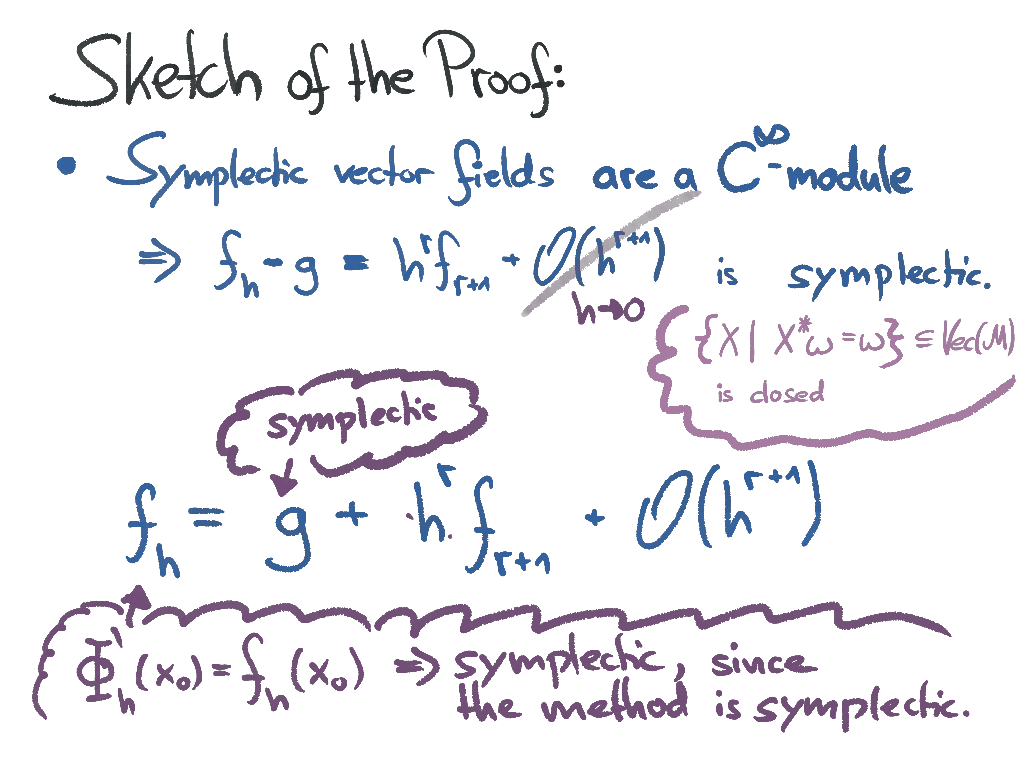 Sketch of the Proof:
• Symplectic vector fields are a C^∞-module
⇒ f_h - g = h^r f_{r+1} + O(h^{r+1}) is symplectic.
h→0
{X | X*ω = ω} ⊆ Vec(M)
is closed
symplectic
f_h = g + h^r f_{r+1} + O(h^{r+1})
Φ'_h(x_0) = f_h(x_0) ⇒ symplectic, since
the method is symplectic.